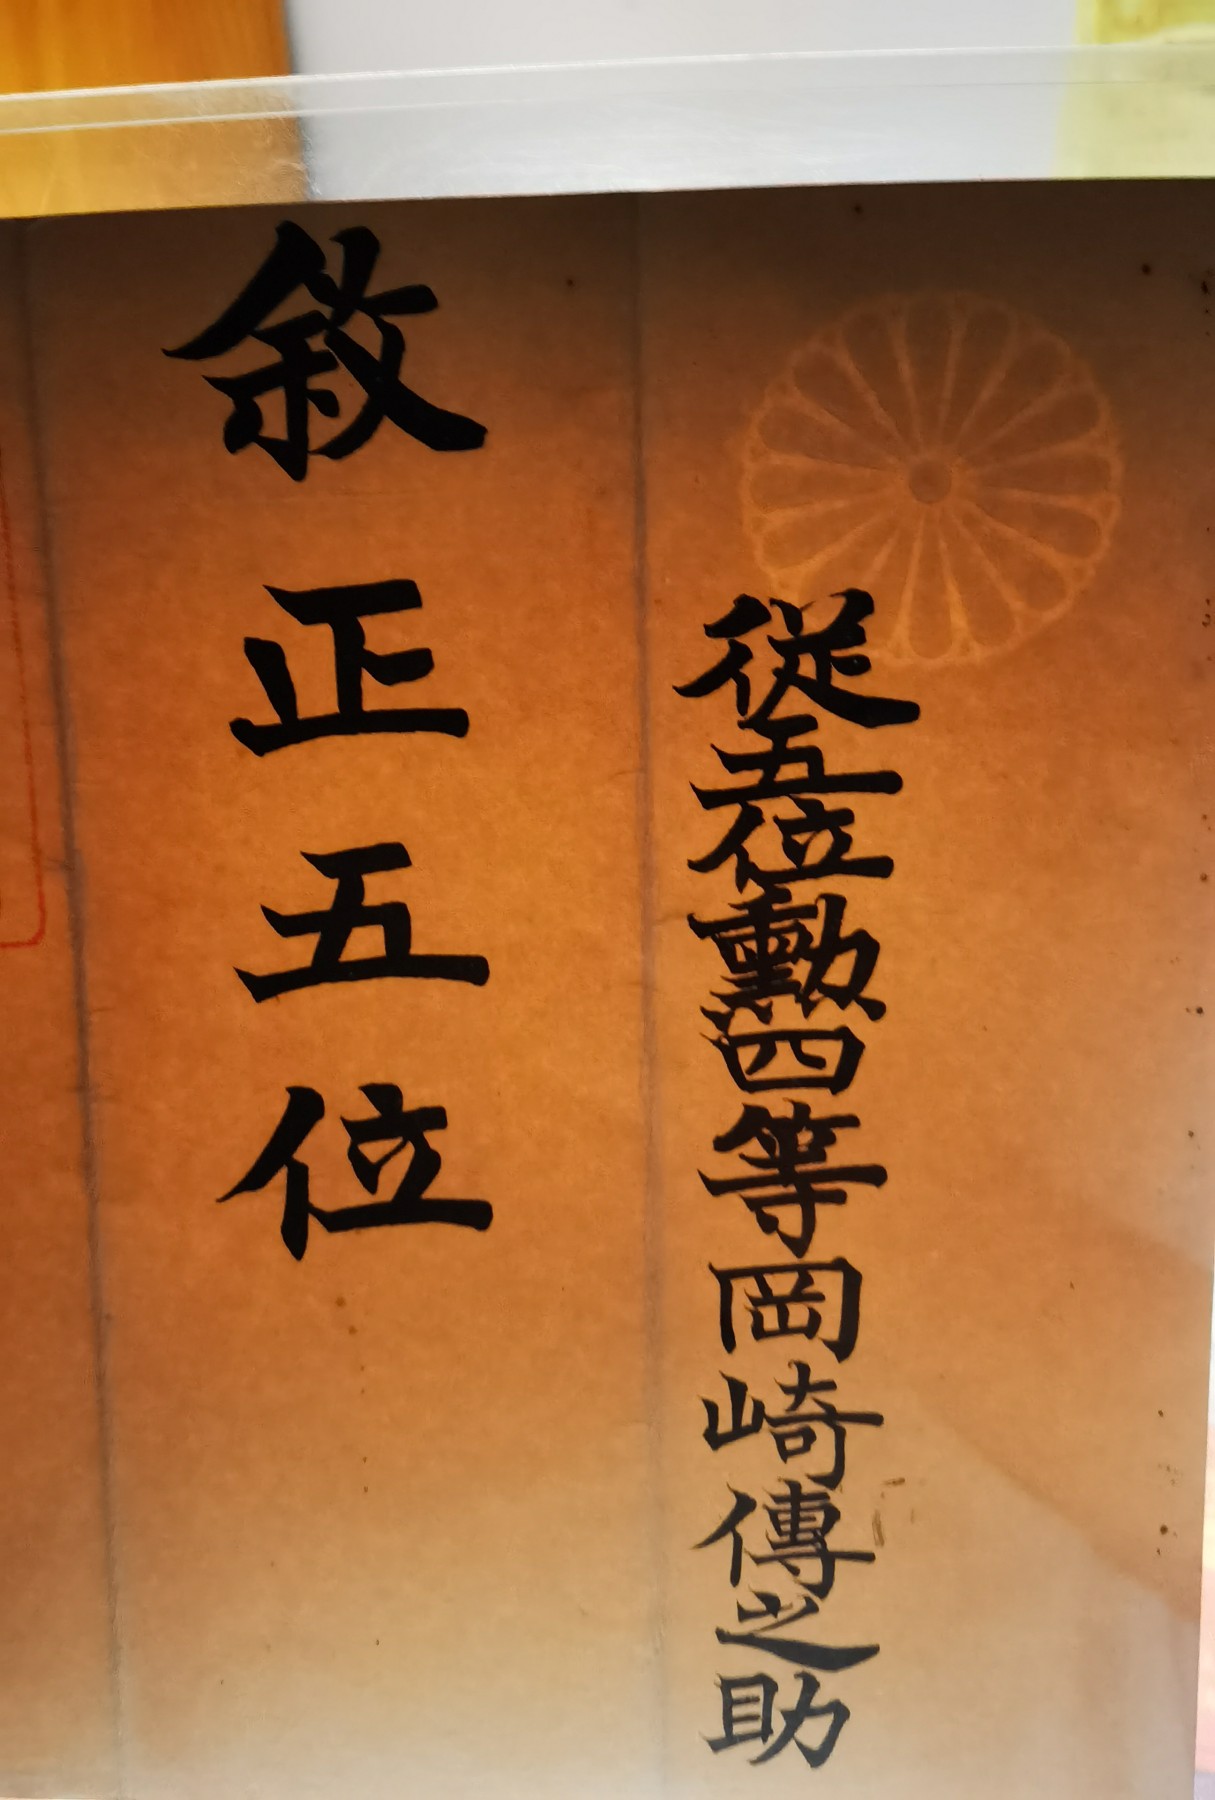 從五位勳四等岡崎傳之助
敘正五位